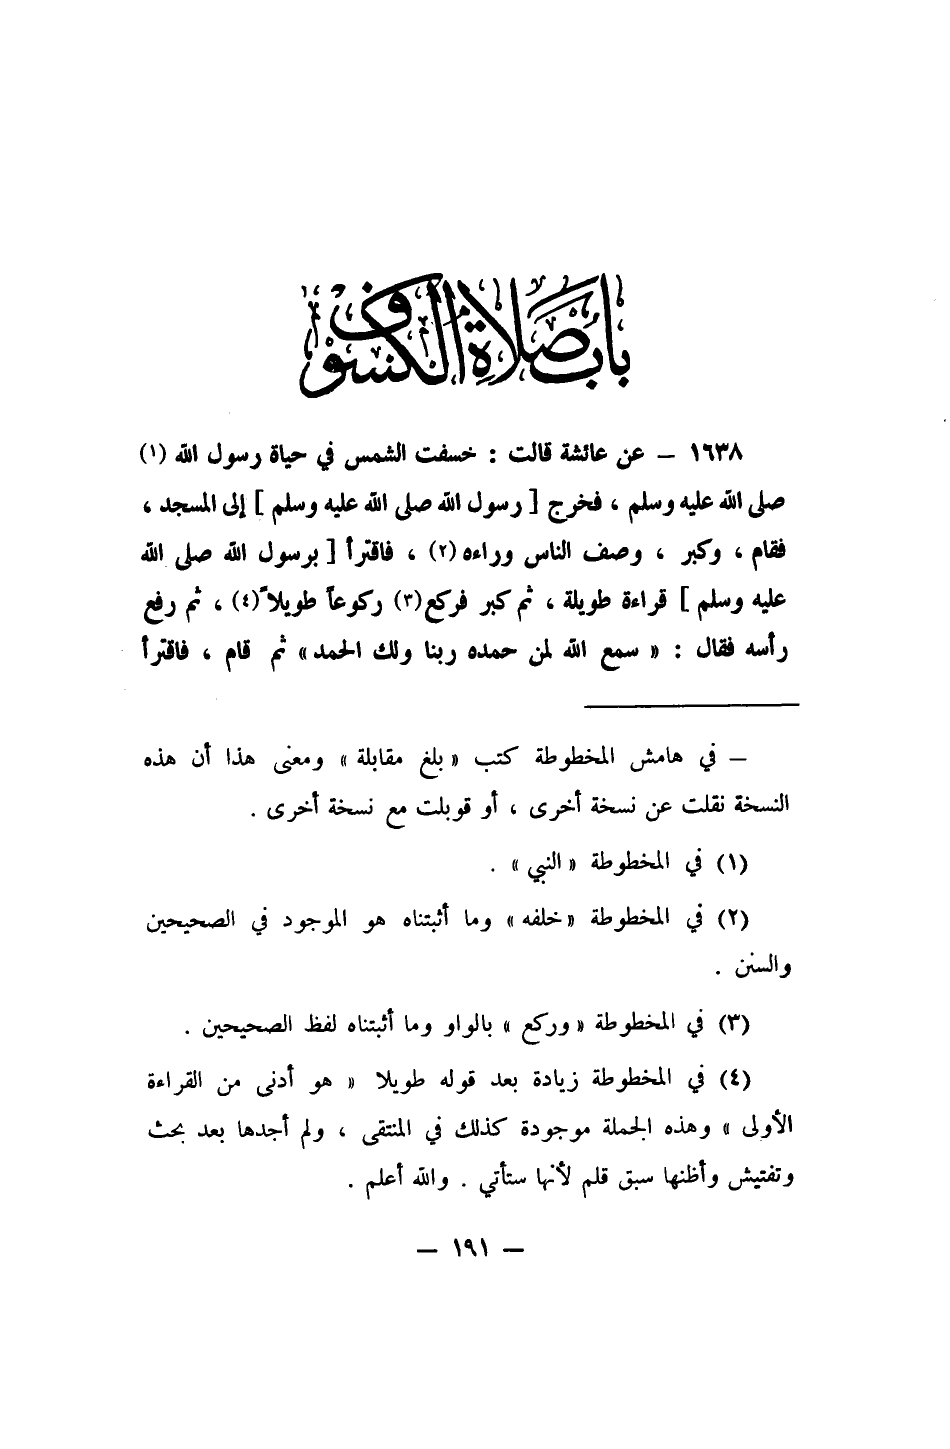 باب صلاة الكسوف
١٦٣٨ – عن عائشة قالت : خسفت الشمس في حياة رسول الله (١)
صلى الله عليه وسلم ، فخرج [ رسول الله صلى الله عليه وسلم ] إلى المسجد ،
فقام ، وكبر ، وصف الناس وراءه (٢) ، فاقترأ [ برسول الله صلى الله
عليه وسلم ] قراءة طويلة ، ثم كبر فركع (٣) ركوعاً طويلاً (٤) ، ثم رفع
رأسه فقال : « سمع الله لمن حمده ربنا ولك الحمد » ثم قام ، فاقترأ
– في هامش المخطوطة كتب « بلغ مقابلة » ومعنى هذا أن هذه
النسخة نقلت عن نسخة أخرى ، أو قوبلت مع نسخة أخرى .
(١) في المخطوطة « النبي » .
(٢) في المخطوطة « خلفه » وما أثبتناه هو الموجود في الصحيحين
والسنن .
(٣) في المخطوطة « وركع » بالواو وما أثبتناه لفظ الصحيحين .
(٤) في المخطوطة زيادة بعد قوله طويلا « هو أدنى من القراءة
الأولى » وهذه الجملة موجودة كذلك في المنتقى ، ولم أجدها بعد بحث
وتفتيش وأظنها سبق قلم لأنها ستأتي . والله أعلم .
– ١٩١ –